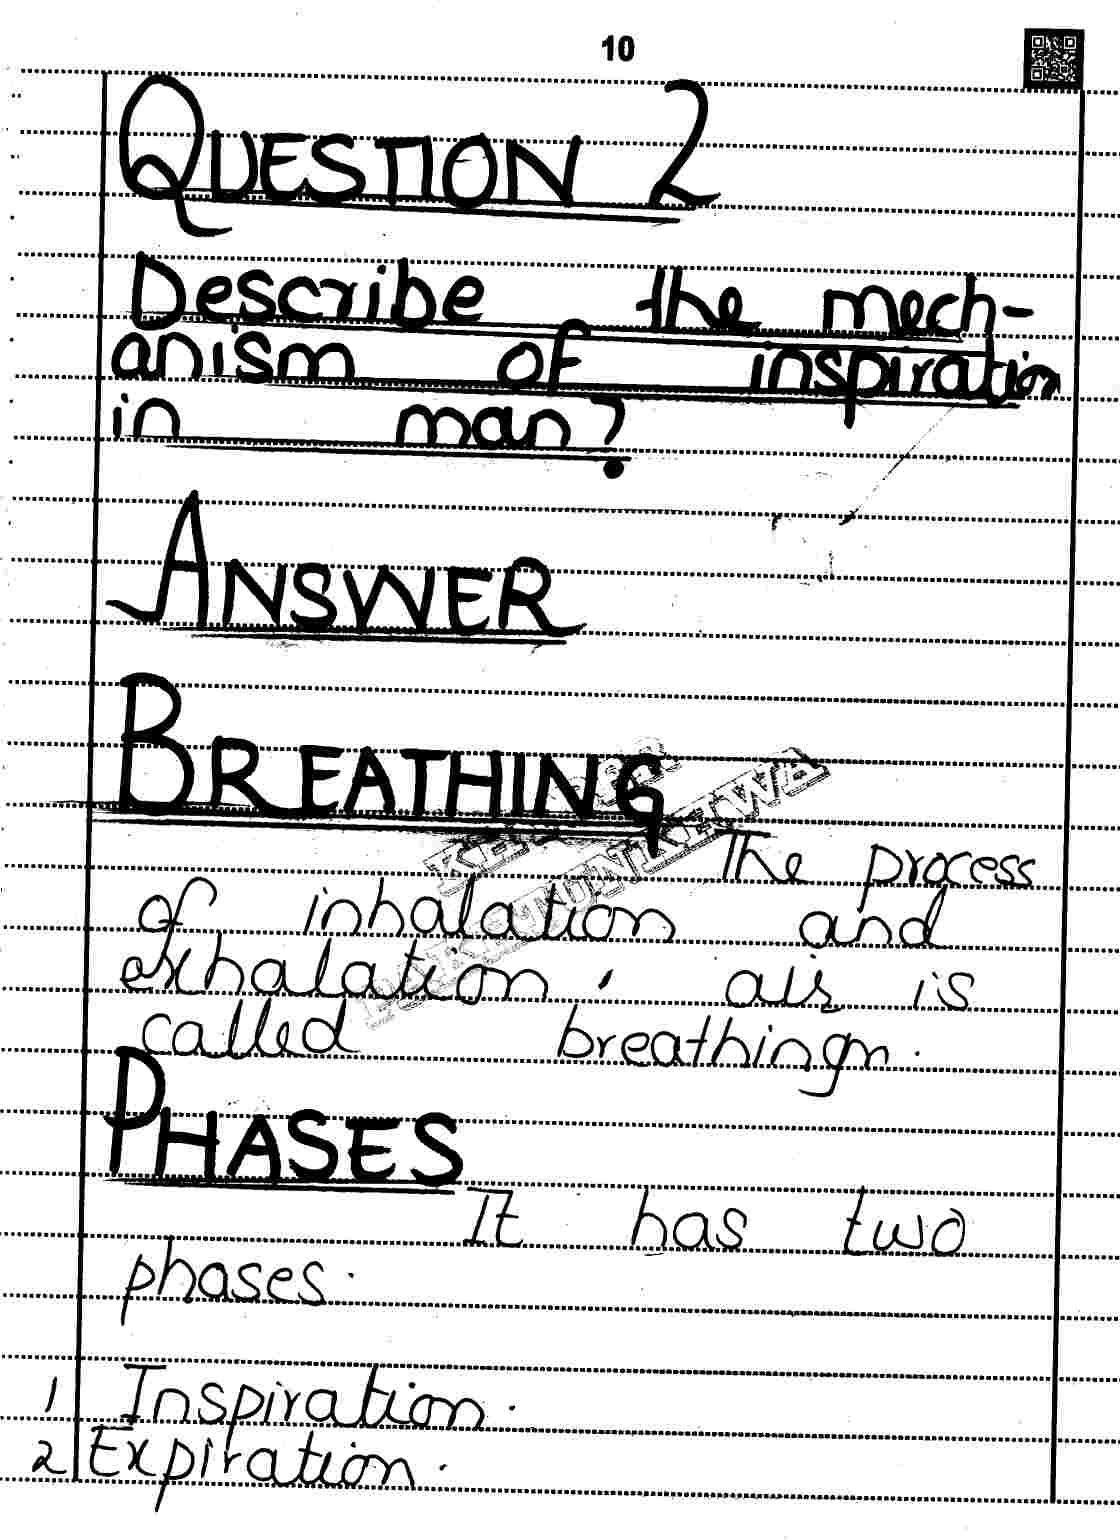 10
QUESTION 2
Describe the mech-
anism of inspiration
in man?
ANSWER
BREATHING
The process
of inhalation and
exhalation, air is
called breathing.
PHASES
It has two
phases.
1 Inspiration.
2 Expiration.
PAKHTUNKHWA